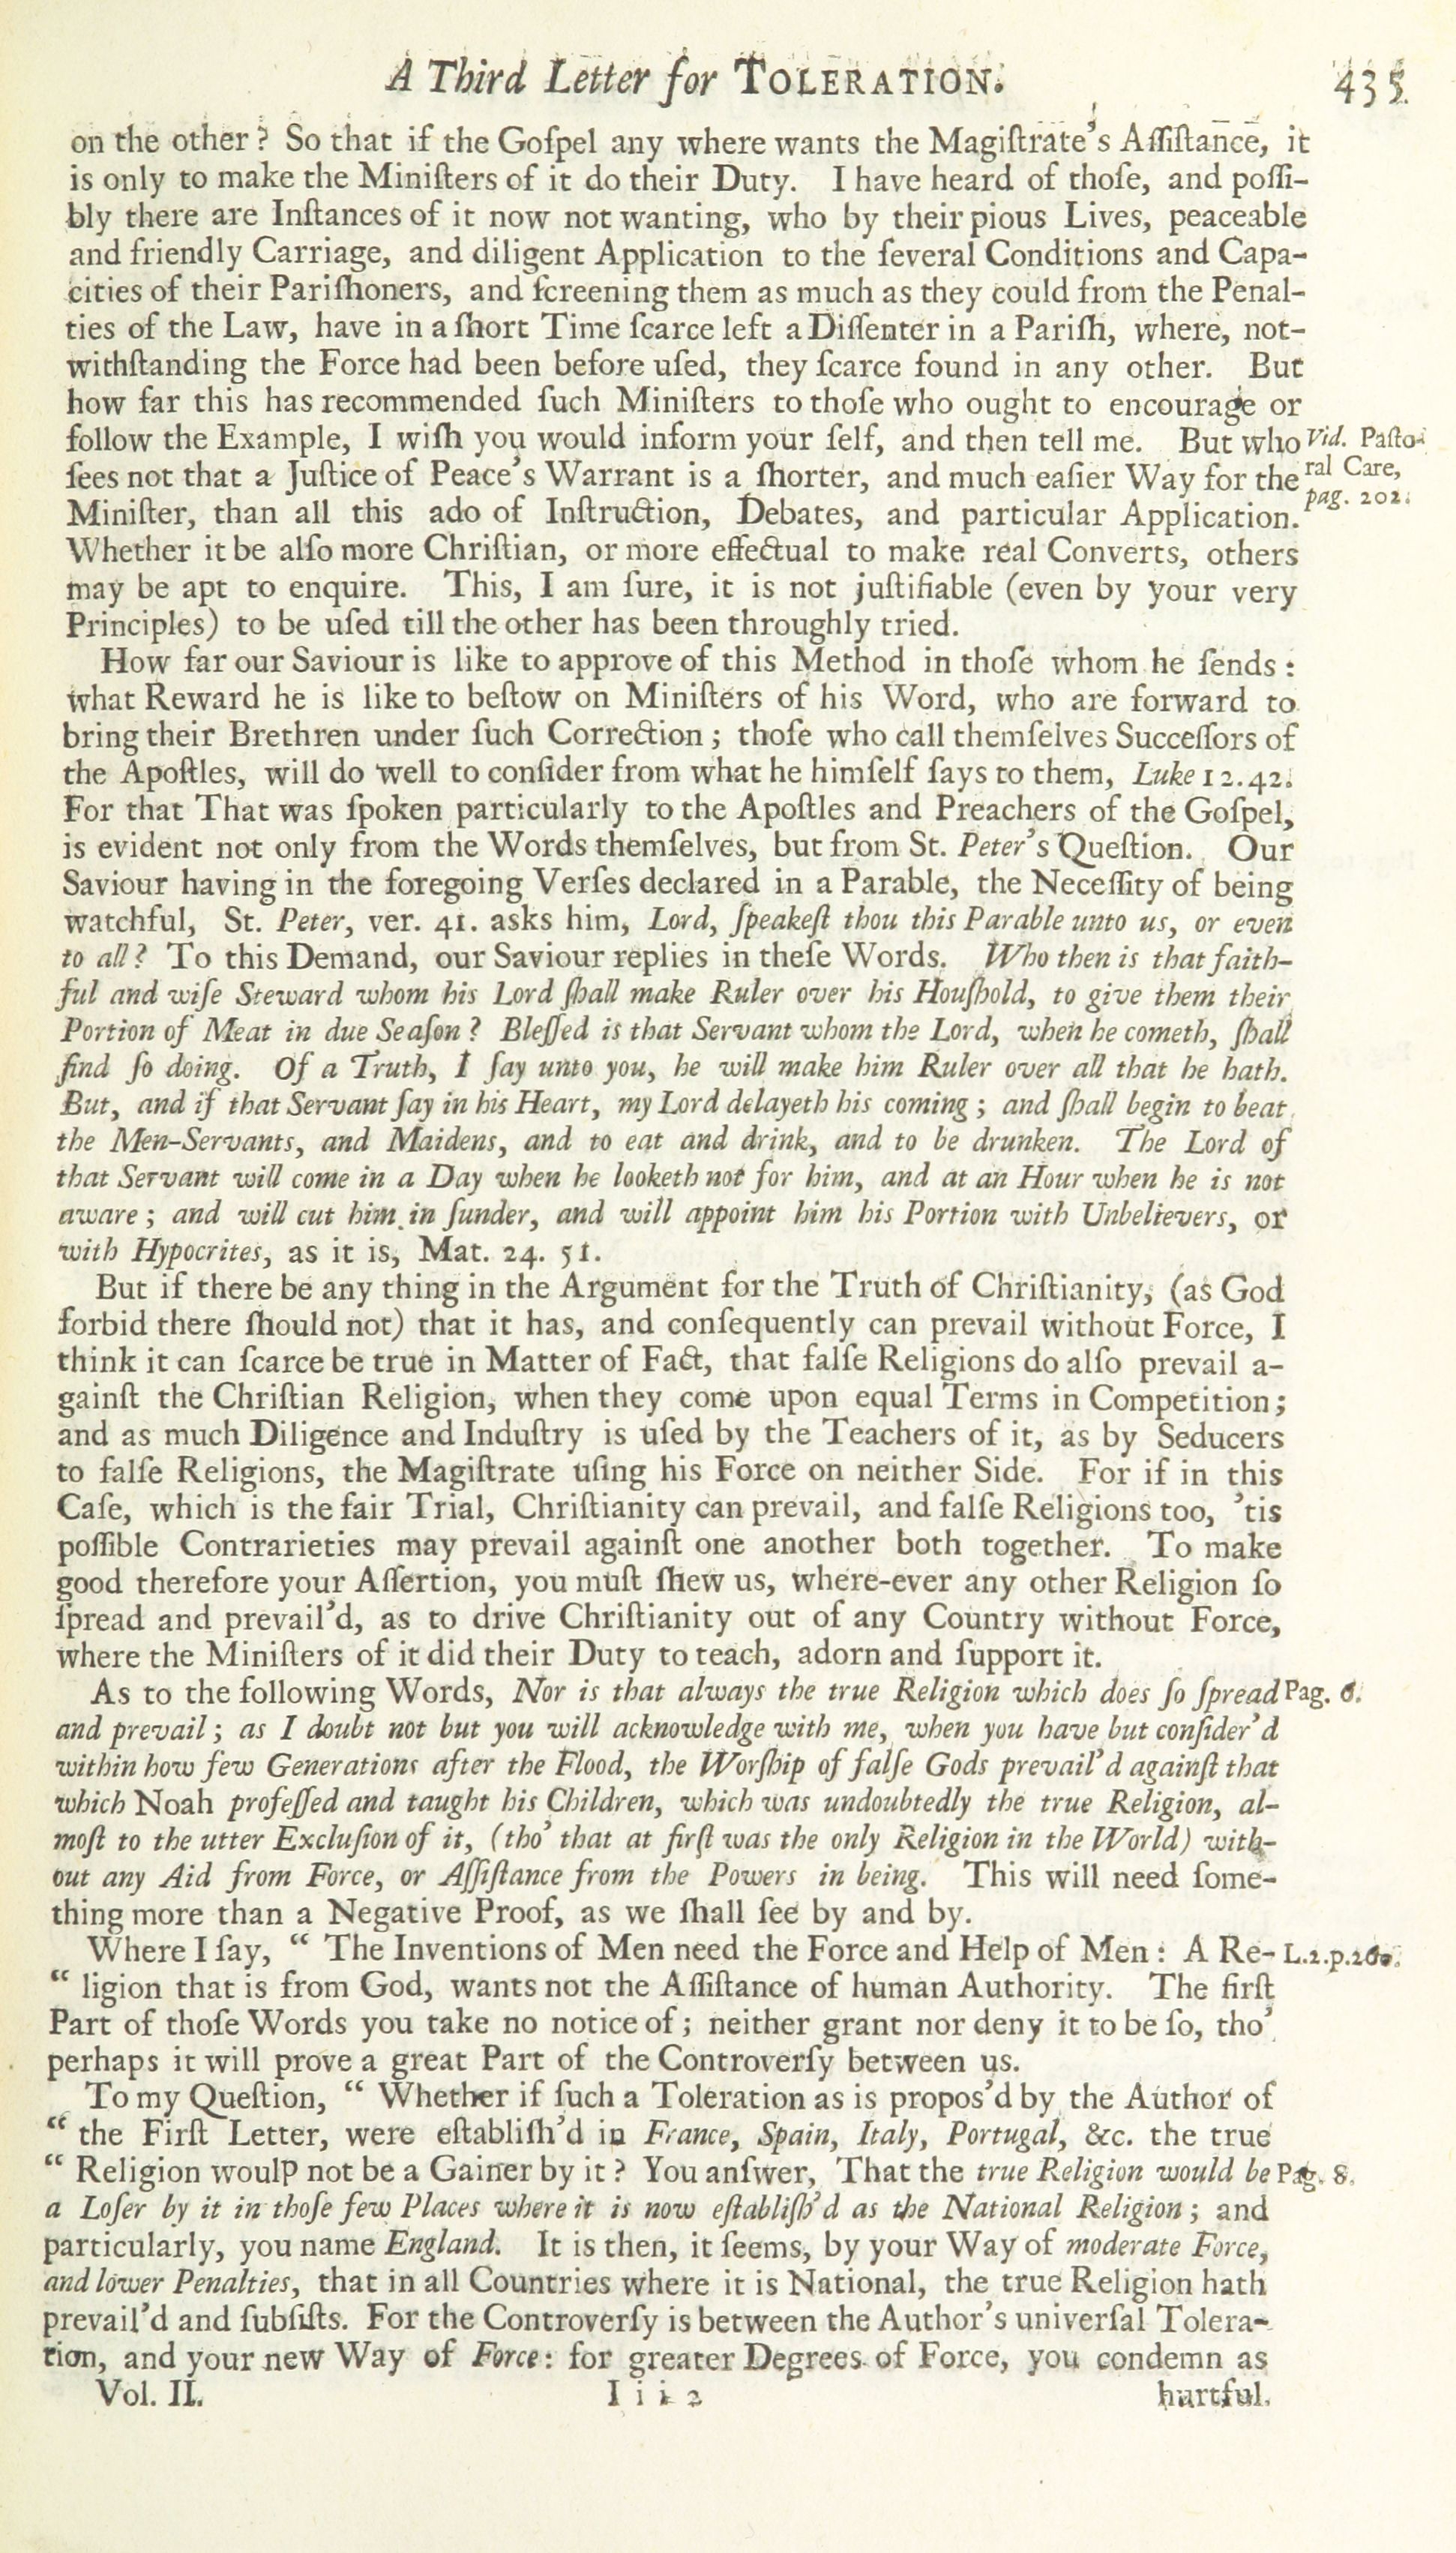 A Third Letter for TOLERATION. 435
on the other? So that if the Goſpel any where wants the Magiſtrate's Aſſiſtance, it
is only to make the Miniſters of it do their Duty. I have heard of thoſe, and poſſi-
bly there are Inſtances of it now not wanting, who by their pious Lives, peaceable
and friendly Carriage, and diligent Application to the ſeveral Conditions and Capa-
cities of their Pariſhoners, and ſcreening them as much as they could from the Penal-
ties of the Law, have in a ſhort Time ſcarce left a Diſſenter in a Pariſh, where, not-
withſtanding the Force had been before uſed, they ſcarce found in any other. But
how far this has recommended ſuch Miniſters to thoſe who ought to encourage or
follow the Example, I wiſh you would inform your ſelf, and then tell me. But who
ſees not that a Juſtice of Peace's Warrant is a ſhorter, and much eaſier Way for the
Miniſter, than all this ado of Inſtruction, Debates, and particular Application.
Vid. Paſto-
ral Care,
pag. 202.
Whether it be alſo more Chriſtian, or more effectual to make real Converts, others
may be apt to enquire. This, I am ſure, it is not juſtifiable (even by your very
Principles) to be uſed till the other has been throughly tried.
How far our Saviour is like to approve of this Method in thoſe whom he ſends:
what Reward he is like to beſtow on Miniſters of his Word, who are forward to
bring their Brethren under ſuch Correction; thoſe who call themſelves Succeſſors of
the Apoſtles, will do well to conſider from what he himſelf ſays to them, Luke 12.42.
For that That was ſpoken particularly to the Apoſtles and Preachers of the Goſpel,
is evident not only from the Words themſelves, but from St. Peter's Queſtion. Our
Saviour having in the foregoing Verſes declared in a Parable, the Neceſſity of being
watchful, St. Peter, ver. 41. asks him, Lord, ſpeakeſt thou this Parable unto us, or even
to all? To this Demand, our Saviour replies in theſe Words. Who then is that faith-
ful and wiſe Steward whom his Lord ſhall make Ruler over his Houſhold, to give them their
Portion of Meat in due Seaſon? Bleſſed is that Servant whom the Lord, when he cometh, ſhall
find ſo doing. Of a Truth, I ſay unto you, he will make him Ruler over all that he hath.
But, and if that Servant ſay in his Heart, my Lord delayeth his coming; and ſhall begin to beat
the Men-Servants, and Maidens, and to eat and drink, and to be drunken. The Lord of
that Servant will come in a Day when he looketh not for him, and at an Hour when he is not
aware; and will cut him in ſunder, and will appoint him his Portion with Unbelievers, or
with Hypocrites, as it is, Mat. 24. 51.
But if there be any thing in the Argument for the Truth of Chriſtianity, (as God
forbid there ſhould not) that it has, and conſequently can prevail without Force, I
think it can ſcarce be true in Matter of Fact, that falſe Religions do alſo prevail a-
gainſt the Chriſtian Religion, when they come upon equal Terms in Competition;
and as much Diligence and Induſtry is uſed by the Teachers of it, as by Seducers
to falſe Religions, the Magiſtrate uſing his Force on neither Side. For if in this
Caſe, which is the fair Trial, Chriſtianity can prevail, and falſe Religions too, 'tis
poſſible Contrarieties may prevail againſt one another both together. To make
good therefore your Aſſertion, you muſt ſhew us, where-ever any other Religion ſo
ſpread and prevail'd, as to drive Chriſtianity out of any Country without Force,
where the Miniſters of it did their Duty to teach, adorn and ſupport it.
As to the following Words, Nor is that always the true Religion which does ſo ſpread Pag. 6.
and prevail; as I doubt not but you will acknowledge with me, when you have but conſider'd
within how few Generations after the Flood, the Worſhip of falſe Gods prevail'd againſt that
which Noah profeſſed and taught his Children, which was undoubtedly the true Religion, al-
moſt to the utter Excluſion of it, (tho' that at firſt was the only Religion in the World) with-
out any Aid from Force, or Aſſiſtance from the Powers in being. This will need ſome-
thing more than a Negative Proof, as we ſhall ſee by and by.
Where I ſay, “ The Inventions of Men need the Force and Help of Men: A Re- L.2.p.260.
“ ligion that is from God, wants not the Aſſiſtance of human Authority. The firſt
Part of thoſe Words you take no notice of; neither grant nor deny it to be ſo, tho'
perhaps it will prove a great Part of the Controverſy between us.
To my Queſtion, “ Whether if ſuch a Toleration as is propos'd by the Author of
“ the Firſt Letter, were eſtabliſh'd in France, Spain, Italy, Portugal, &c. the true
“ Religion woulp not be a Gainer by it? You anſwer, That the true Religion would be Pag. 8.
a Loſer by it in thoſe few Places where it is now eſtabliſh'd as the National Religion; and
particularly, you name England. It is then, it ſeems, by your Way of moderate Force,
and lower Penalties, that in all Countries where it is National, the true Religion hath
prevail'd and ſubſiſts. For the Controverſy is between the Author's univerſal Tolera-
tion, and your new Way of Force: for greater Degrees of Force, you condemn as
Vol. II. I i i 2 hurtful.